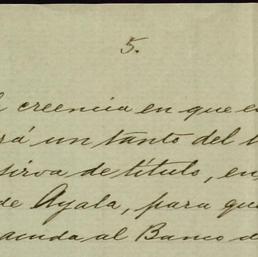 5.
creencia en que e
rá un tanto del
sirva de título, en
de Ayala, para qu
acuda al Banco d